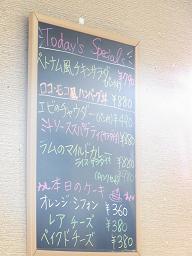 Today's Special
ベトナム風チキンサラダ ¥790
ロコモコ風ハンバーグ丼 ¥880
エビのチャウダー
ミートソーススパゲティ ¥820
ラムのマイルドカレー
ライス サラダ付 ¥820
本日のケーキ
オレンジ シフォン ¥360
レア チーズ ¥380
ベイクドチーズ ¥380